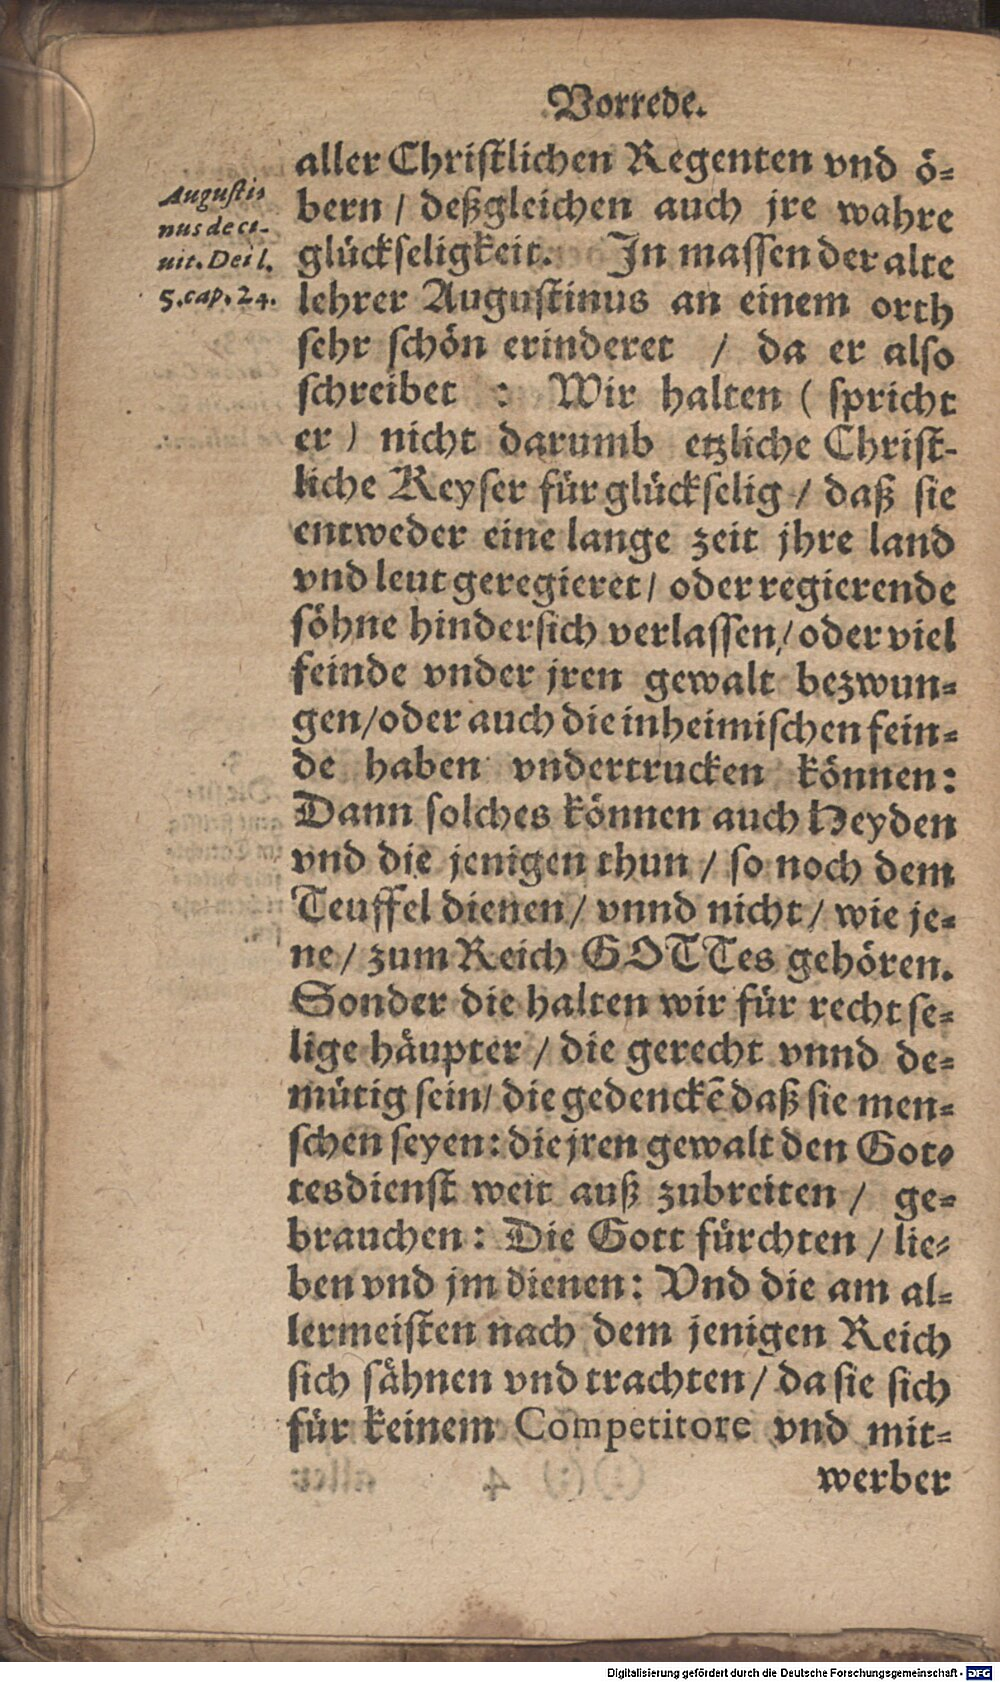 Vorrede.
aller Christlichen Regenten vnd ö-
bern / deßgleichen auch jre wahre
glückseligkeit. In massen der alte
lehrer Augustinus an einem orth
sehr schön erinderet / da er also
schreibet : Wir halten ( spricht
er ) nicht darumb etzliche Christ-
liche Keyser für glückselig / daß sie
entweder eine lange zeit jhre land
vnd leut geregieret / oder regierende
söhne hindersich verlassen / oder viel
feinde vnder jren gewalt bezwun-
gen / oder auch die inheimischen fein-
de haben vndertrucken können:
Dann solches können auch Heyden
vnd die jenigen thun / so noch dem
Teuffel dienen / vnnd nicht / wie je-
ne / zum Reich GOTTes gehören.
Sonder die halten wir für recht se-
lige häupter / die gerecht vnnd de-
mütig sein / die gedenckē daß sie men-
schen seyen: die jren gewalt den Got-
tesdienst weit auß zubreiten / ge-
brauchen: Die Gott fürchten / lie-
ben vnd jm dienen: Vnd die am al-
lermeisten nach dem jenigen Reich
sich sähnen vnd trachten / da sie sich
für keinem Competitore vnd mit-
werber
Augusti-
nus de ci-
uit. Dei l.
5. cap. 24.
Digitalisierung gefördert durch die Deutsche Forschungsgemeinschaft - DFG